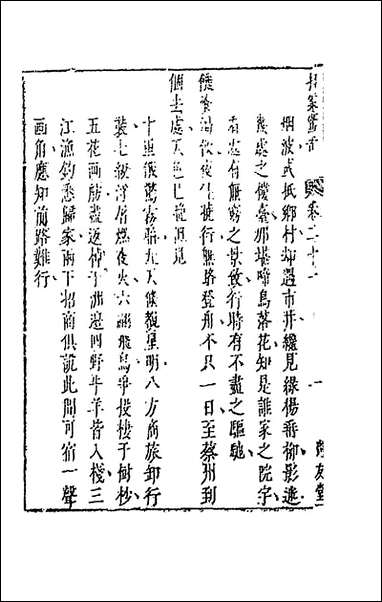 拍案驚奇 卷二十一 一 尚友堂
烟波或抵鄉村却遇市井纔見綠楊垂柳影迷
幾處之樓臺那堪啼鳥落花知是誰家之院宇
看處有無窮之景致行時有不盡之驅馳
饑餐渴飲夜住曉行無路登舟不只一日至蔡州到
個去處天色已晚但見
十里俄驚霧暗九天倐覩星明八方商旅卸行
裝七級浮屠燃夜火六翮飛鳥爭投棲于樹杪
五花畫舫盡返棹于洲邊四野牛羊皆入棧三
江漁釣悉歸家兩下招商俱說此間可宿一聲
画角應知前路難行